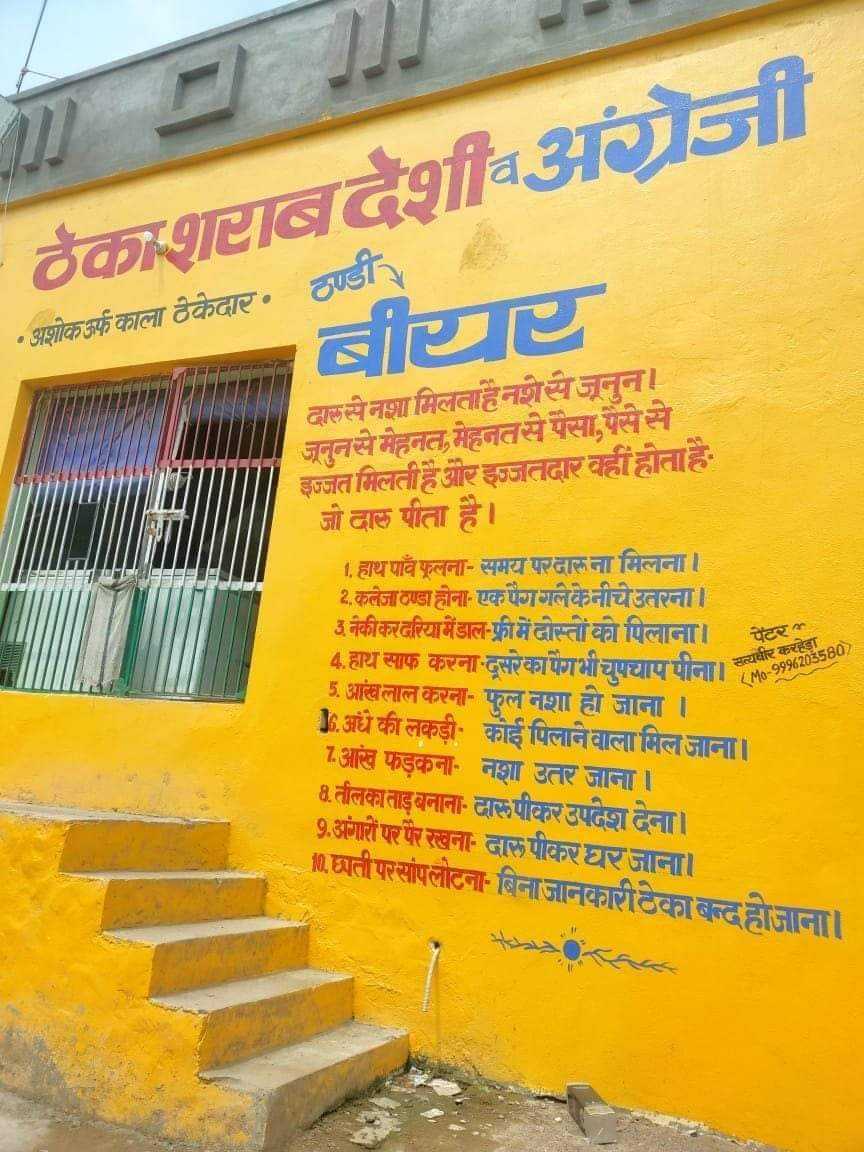 ठेका शराब देशी व अंग्रेजी
• अशोक उर्फ काला ठेकेदार •
ठण्डी
बीयर
दारू से नशा मिलता है नशे से जूनुन।
जूनुन से मेहनत, मेहनत से पैसा, पैसे से
इज्जत मिलती है और इज्जतदार वहीं होता है-
जो दारू पीता है।
1. हाथ पावँ फूलना- समय पर दारू ना मिलना।
2. कलेजा ठण्डा होना- एक पैग गले के नीचे उतरना।
3. नेकी कर दरिया में डाल- फ्री में दोस्तों को पिलाना।
4. हाथ साफ करना- दुसरे का पैग भी चुपचाप पीना।
5. आंख लाल करना- फुल नशा हो जाना ।
6. अंधे की लकड़ी- कोई पिलाने वाला मिल जाना।
7. आंख फड़कना- नशा उतर जाना ।
8. तीलका ताड़ बनाना- दारू पीकर उपदेश देना।
9. अंगारों पर पैर रखना- दारू पीकर घर जाना।
10. छाती पर सांप लौटना- बिना जानकारी ठेका बन्द हो जाना।
पेंटर
सत्यवीर करहेड़ा
(Mo-9996203580)